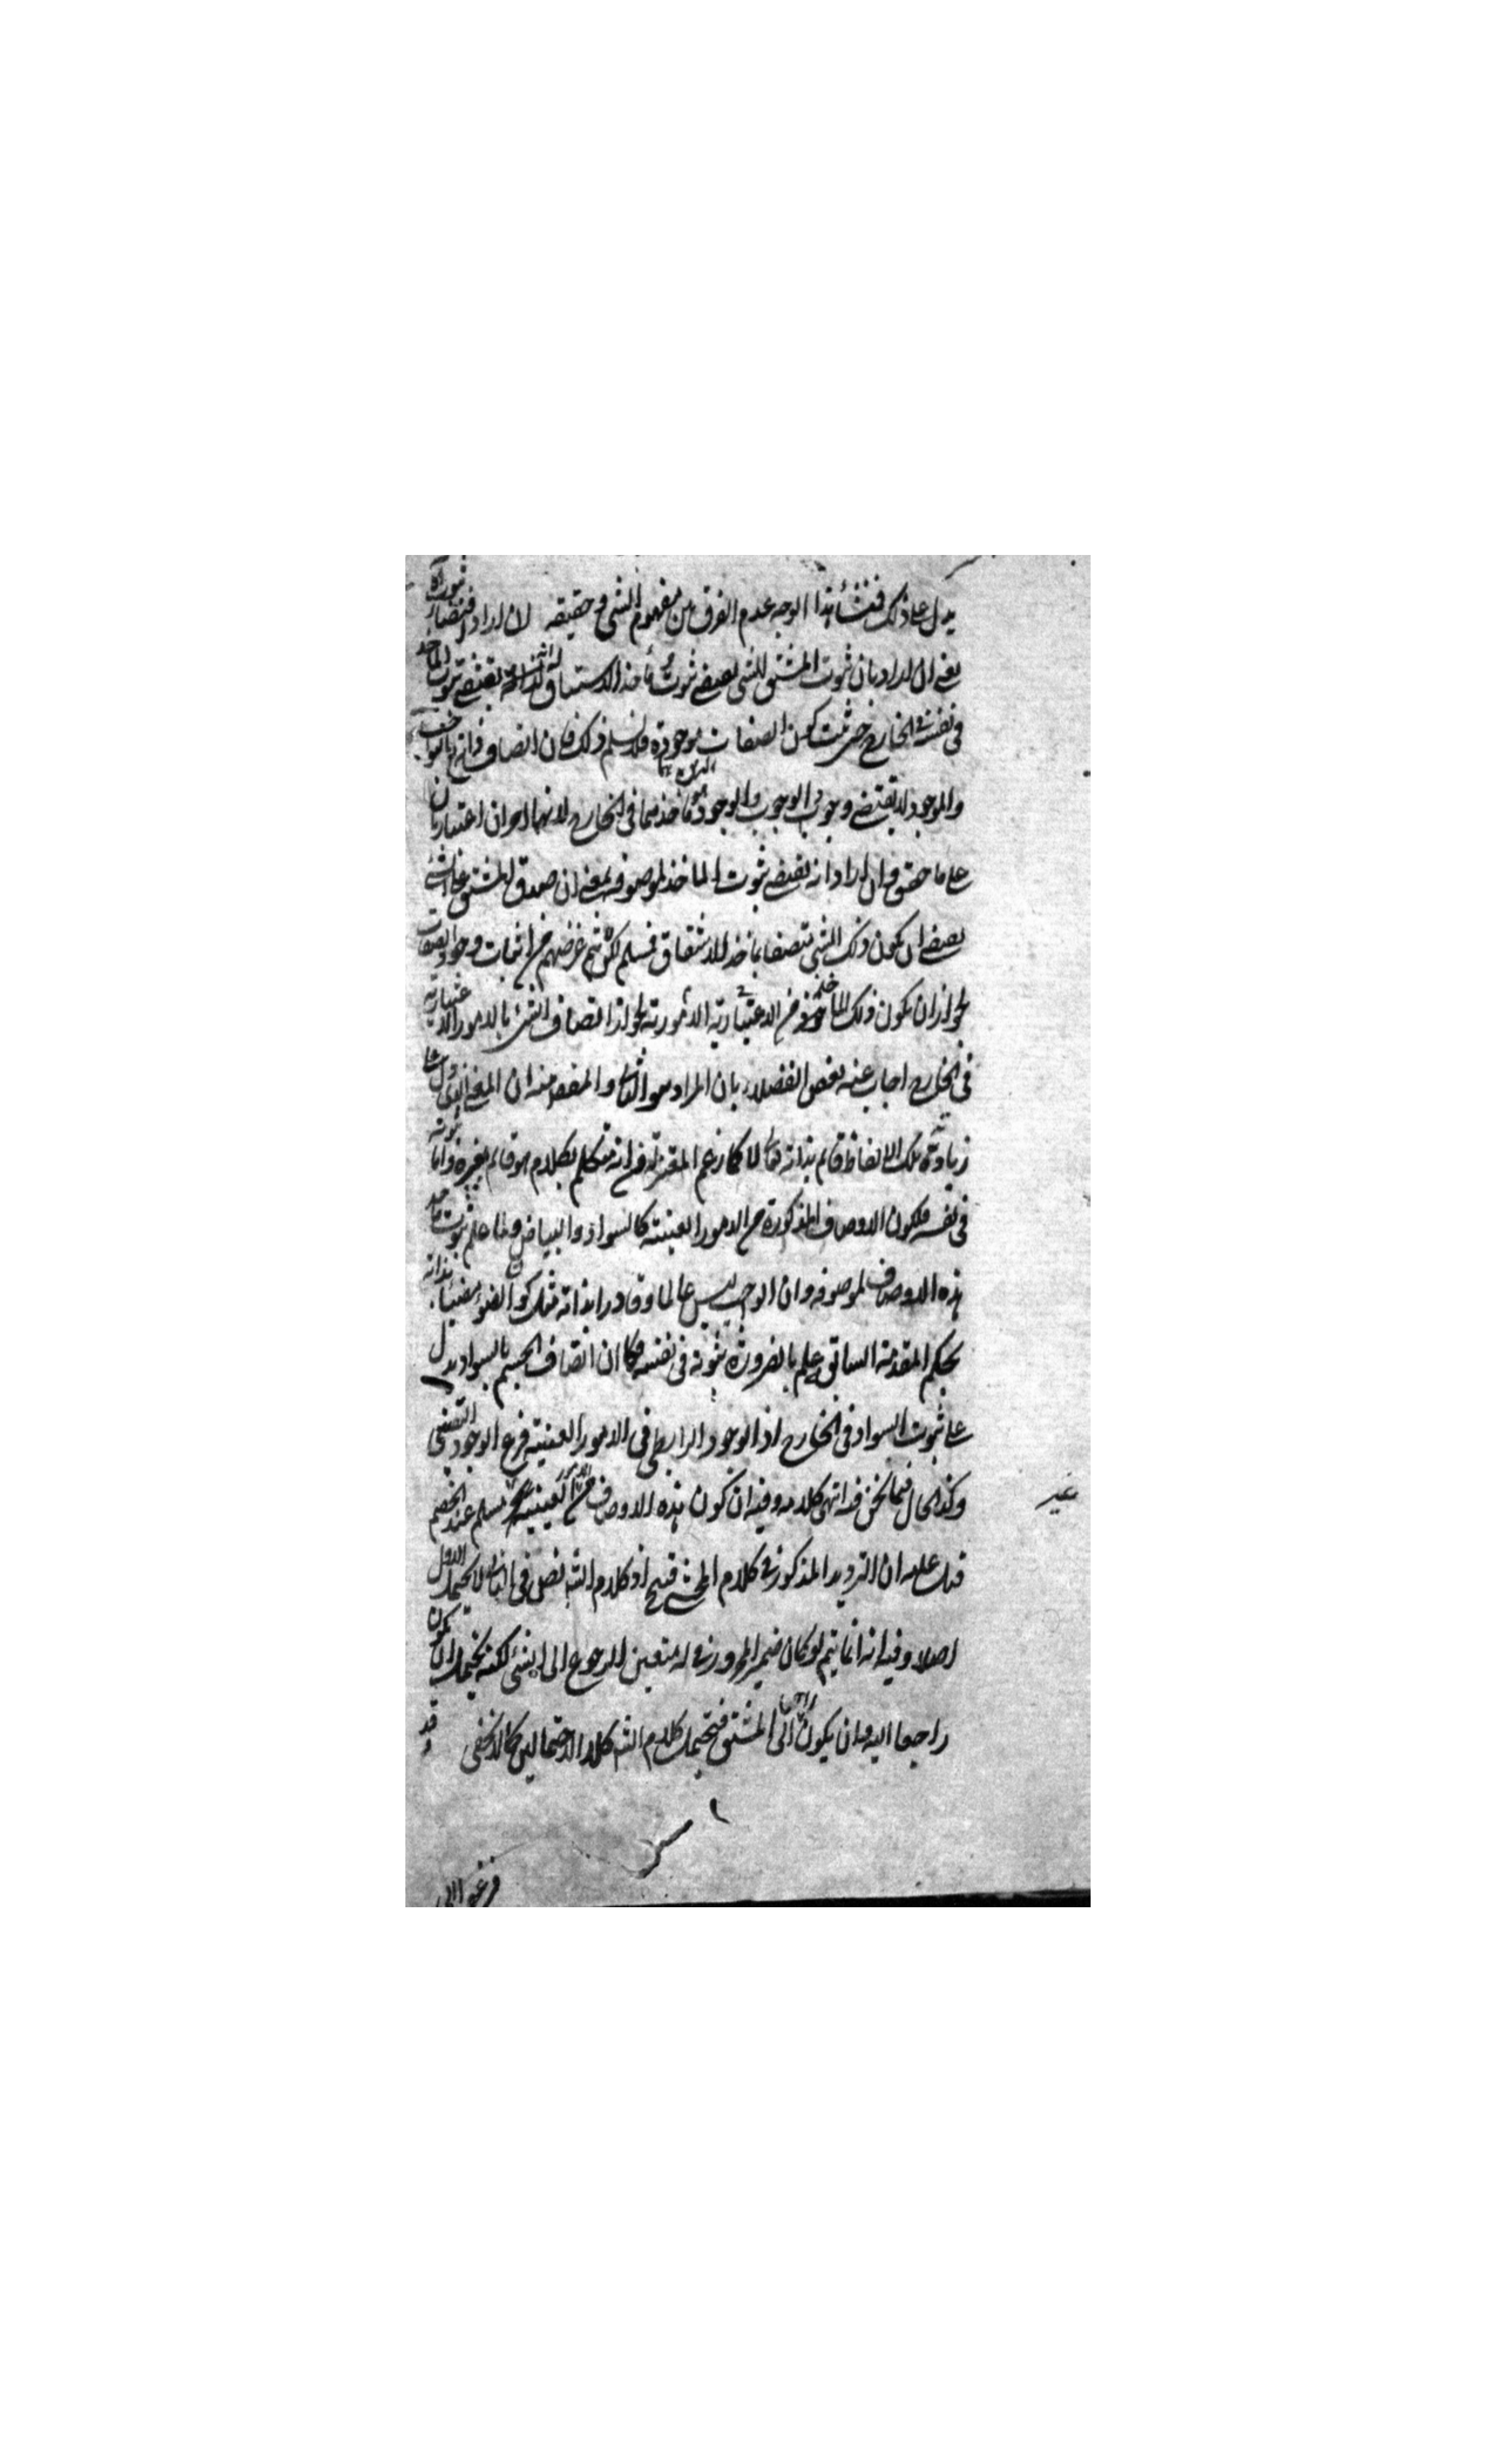 يدل على ذلك فمنشأ هذا الوجه عدم الفرق بين مفهوم الشئ وحقيقته ان اراد اقتضاء ثبوته
يعني ان اراد بان ثبوت المشتق للشئ يقتضي ثبوت مأخذ الاشتقاق له انه يقتضي ثبوت المأخذ
في نفسه في الخارج حتى يثبت كون الصفات موجودة فلا نسلم ذلك فان اتصاف ذاته بالواجب
والموجود لا يقتضي وجود الوجوب والوجود مأخذهما في الخارج لانهما امران اعتباريان
على ما حقق وان اراد انه يقتضي ثبوت المأخذ لموصوفه بمعنى ان صدق المشتق على الشئ
يقتضي ان يكون ذلك الشئ متصفا بمأخذ الاشتقاق فمسلم لكن لا يتم غرضهم من اثبات وجود الصفات
لجواز ان يكون ذلك المأخذ من الامور الاعتبارية لجواز اتصاف الشئ بالامور الاعتبارية
في الخارج اجاب عنه بعض الفضلاء بان المراد هو الثاني والمقصود منه ان المعنى الذي دل على
زيادته تلك الالفاظ قائم بذاته تعالى لا كما زعم المعتزلة من انه متكلم بكلام هو قائم بغيره واما ثبوته
في نفسه فلكون الاوصاف المذكورة من الامور العينية كالسواد والبياض ولما علم ثبوت مأخذ
هذه الاوصاف لموصوفه وان الواجب ليس عالما وقادرا بذاته مثل كون الضوء مضيئا بذاته
بحكم المقدمة السابق علم بالضرورة ثبوته في نفسه فكما ان اتصاف الجسم بالسواد يدل
على ثبوت السواد في الخارج اذ الوجود الرابطي في الامور العينية فرع الوجود
وكذا الحال فيما نحن فيه انتهى كلامه وفيه ان كون هذه الاوصاف من الامور العينية غير مسلم عند الخصم
قيل عليه ان الترديد المذكور في كلام المحشي قبيح اذ كلام الشه نص في الثاني لا يحتمل الاول
اصلا وفيه انه انما يتم لو كان ضمير المجرور في له متعين الرجوع الى الشئ لكنه يحتمل ان يكون
راجعا اليه وان يكون راجعا الى المشتق فيحتمل كلام الشه كلا الاحتمالين كما لا يخفى